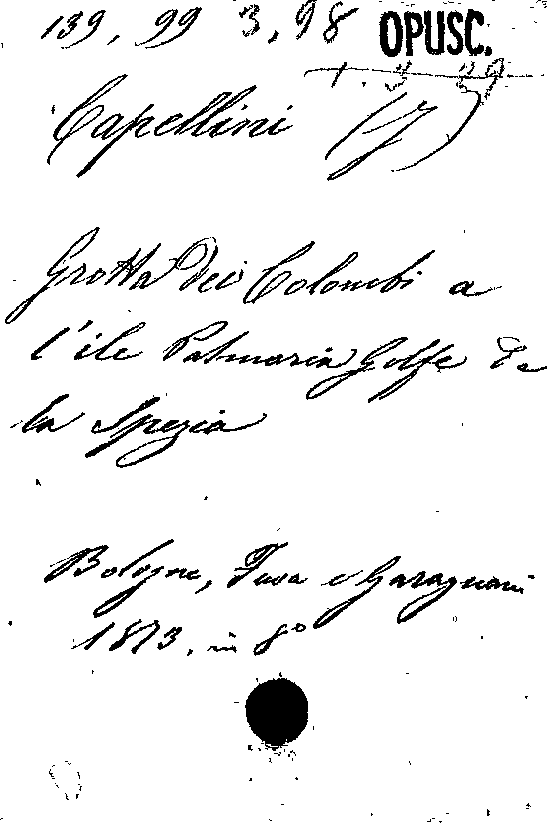 139, 99 3, 98 OPUSC.
Capellini (J)
Grotta dei Colombi a
l'ile Palmaria Golfe de
la Spezia
Bologne, Fava e Garagnani
1873. in 8º